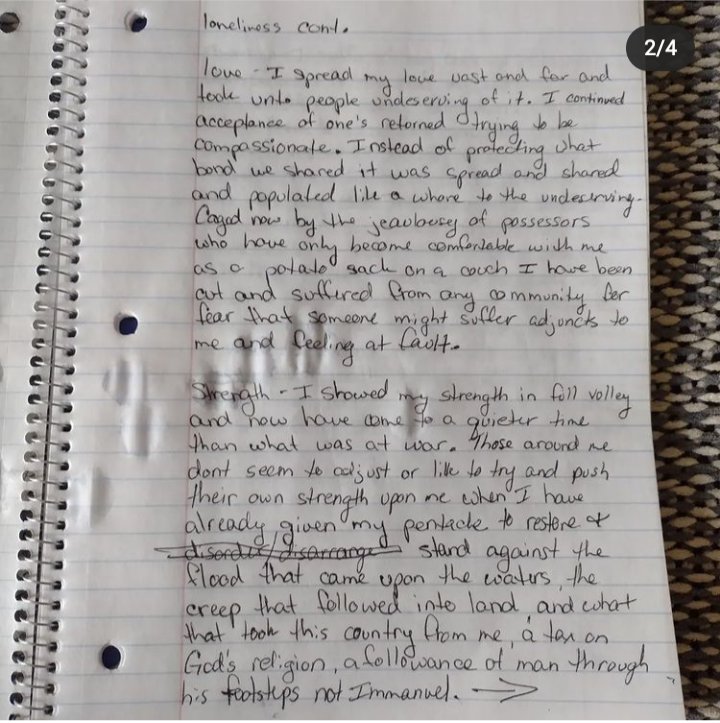 loneliness cont.
2/4
love - I spread my love vast and far and
took unto people undeserving of it. I continued
acceptance of one's returned trying to be
compassionate. Instead of protecting what
bond we shared it was spread and shared
and populated like a whore to the undeserving.
Caged now by the jeaulousey of possessors
who have only become comfortable with me
as a potato sack on a couch I have been
cut and suffered from any community for
fear that someone might suffer adjuncts to
me and feeling at fault.
Strength - I showed my strength in full volley
and now have come to a quieter time
than what was at war. Those around me
dont seem to adjust or like to try and push
their own strength upon me when I have
already given my pentacle to restore &
disorder/disarrange stand against the
flood that came upon the waters, the
creep that followed into land, and what
that took this country from me, a tax on
God's religion, a followance of man through
his footsteps not Immanuel. →